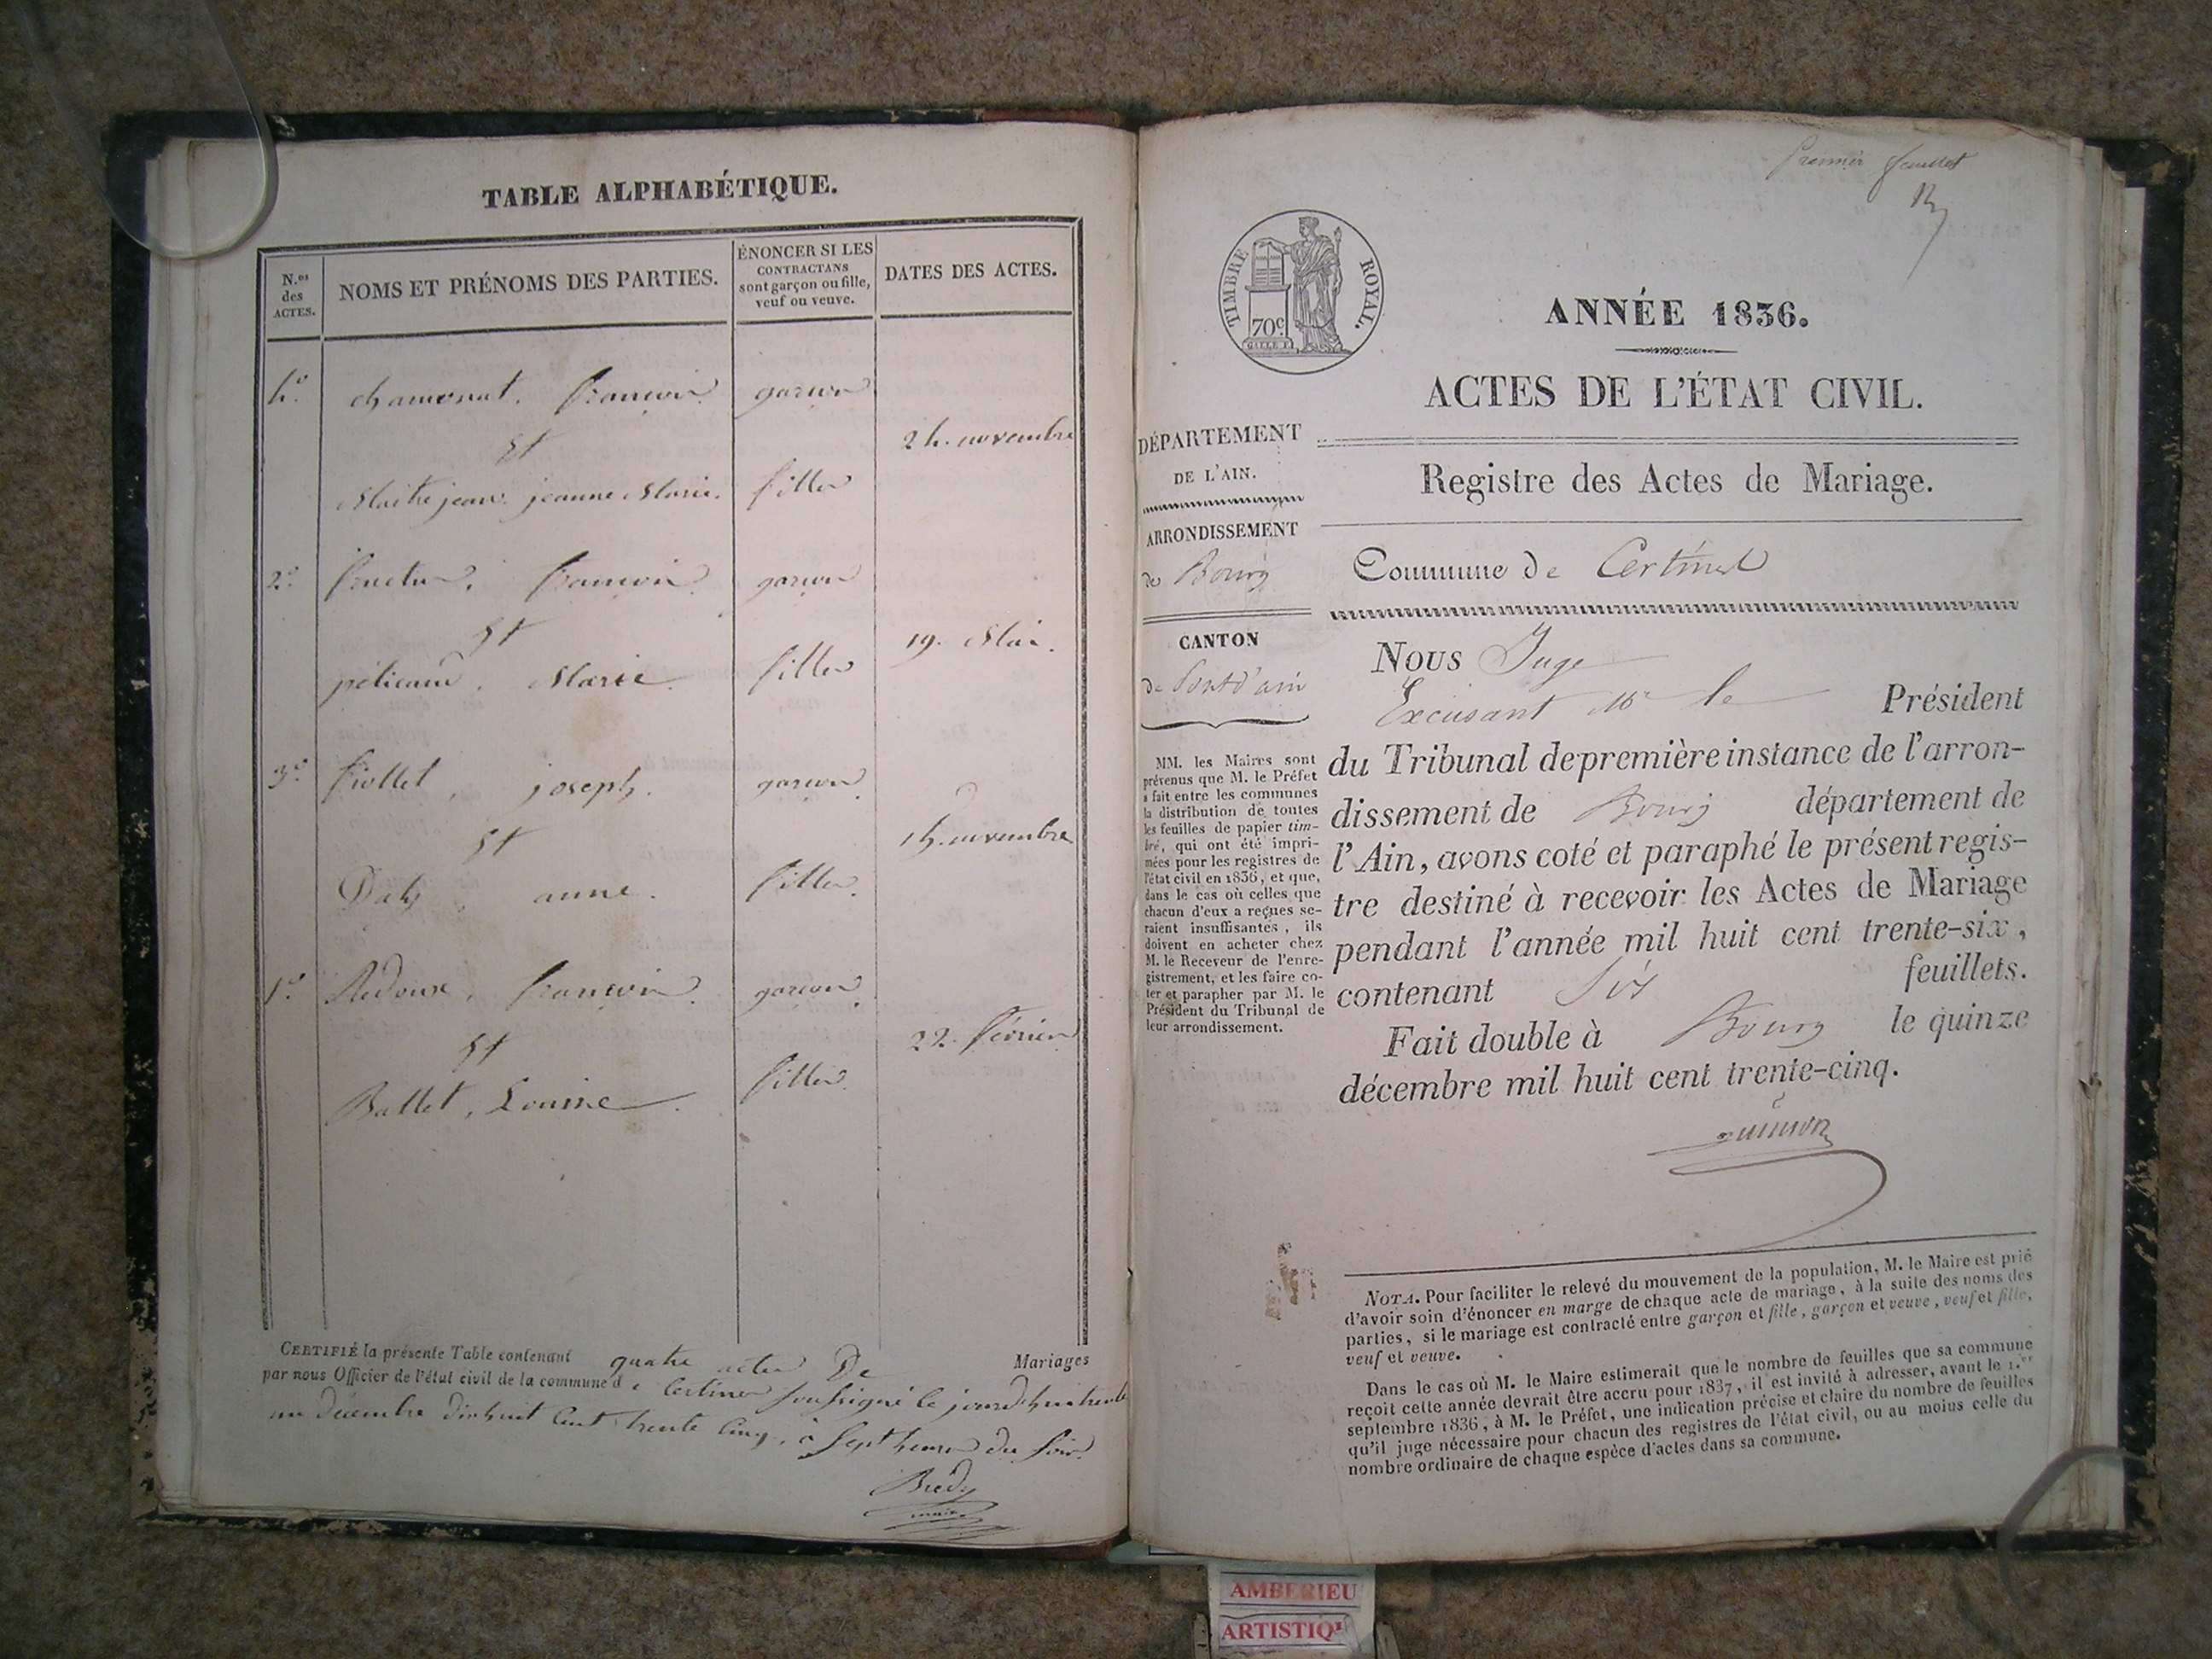 TABLE ALPHABÉTIQUE.
N.os des ACTES.
NOMS ET PRÉNOMS DES PARTIES.
ÉNONCER SI LES
CONTRACTANS
sont garçon ou fille,
veuf ou veuve.
DATES DES ACTES.
4.o françois garçon
Et
24. novembre
Maitrejean. jeanne Marie. fille
2.o françois garçon
Et
19. Mai.
Marie. fille
3.o joseph. garçon
Et
novembre
anne. fille.
1.o Redoux, françois. garçon
Et
22. février
Ballet, Louise. fille.
CERTIFIÉ la présente Table contenant quatre actes De Mariages
par nous Officier de l'état civil de la commune de Certines soussigné le jourd'hui trente
un décembre dix huit Cent trente Cinq, à Sept heures du Soir.
maire
Premier feuillet
TIMBRE ROYAL.
70c
ANNÉE 1836.
ACTES DE L'ÉTAT CIVIL.
Registre des Actes de Mariage.
DÉPARTEMENT
DE L'AIN.
ARRONDISSEMENT
de Bourg
CANTON
de Pont d'ain
MM. les Maires sont
prévenus que M. le Préfet
a fait entre les communes
la distribution de toutes
les feuilles de papier tim-
bré, qui ont été impri-
mées pour les registres de
l'état civil en 1836, et que,
dans le cas où celles que
chacun d'eux a reçues se-
raient insuffisantes, ils
doivent en acheter chez
M. le Receveur de l'enre-
gistrement, et les faire co-
ter et parapher par M. le
Président du Tribunal de
leur arrondissement.
Commune de Certines
Nous Juge
Excusant Mr le Président
du Tribunal de première instance de l'arron-
dissement de Bourg département de
l'Ain, avons coté et paraphé le présent regis-
tre destiné à recevoir les Actes de Mariage
pendant l'année mil huit cent trente-six,
contenant Six feuillets.
Fait double à Bourg le quinze
décembre mil huit cent trente-cinq.
NOTA. Pour faciliter le relevé du mouvement de la population, M. le Maire est prié
d'avoir soin d'énoncer en marge de chaque acte de mariage, à la suite des noms des
parties, si le mariage est contracté entre garçon et fille, garçon et veuve, veuf et fille,
veuf et veuve.
Dans le cas où M. le Maire estimerait que le nombre de feuilles que sa commune
reçoit cette année devrait être accru pour 1837, il est invité à adresser, avant le 1.er
septembre 1836, à M. le Préfet, une indication précise et claire du nombre de feuilles
qu'il juge nécessaire pour chacun des registres de l'état civil, ou au moins celle du
nombre ordinaire de chaque espèce d'actes dans sa commune.
AMBERIEU
ARTISTIQ